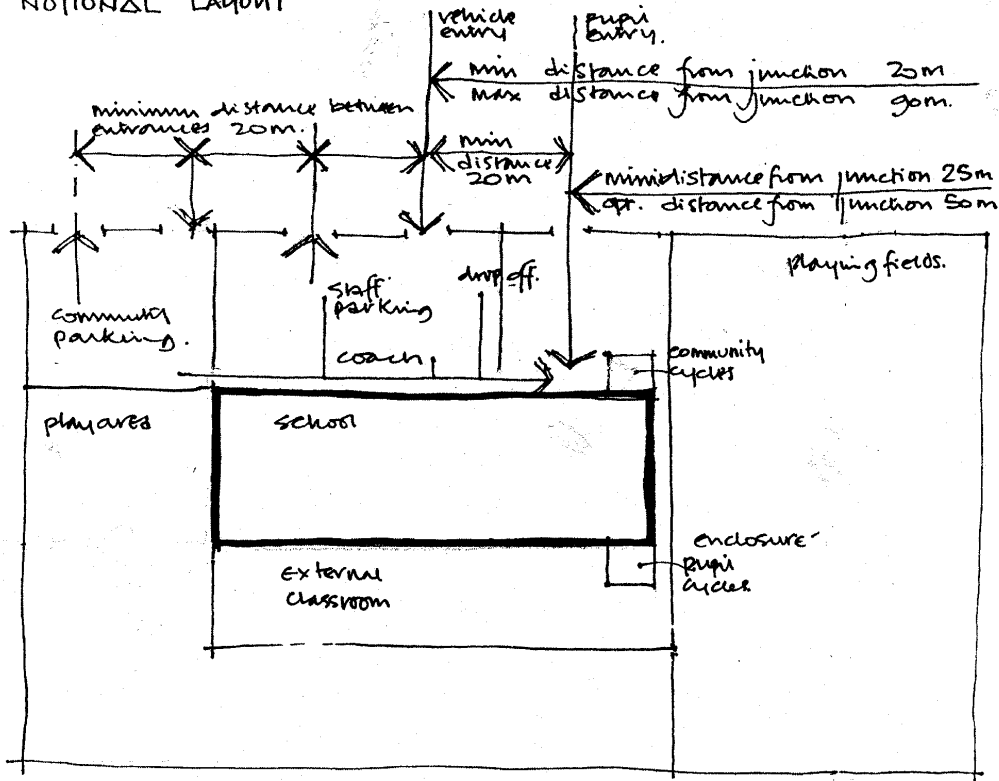 NOTIONAL LAYOUT
vehicle
entry
pupil
entry.
min distance from junction 20m
max distance from junction 90m.
minimum distance between
entrances 20m.
min
distance
20m
min distance from junction 25m
opt. distance from junction 50m
playing fields.
community
parking.
staff
parking
drop off.
coach
community
cycles
play area
school
external
classroom
enclosure-
pupil
cycles